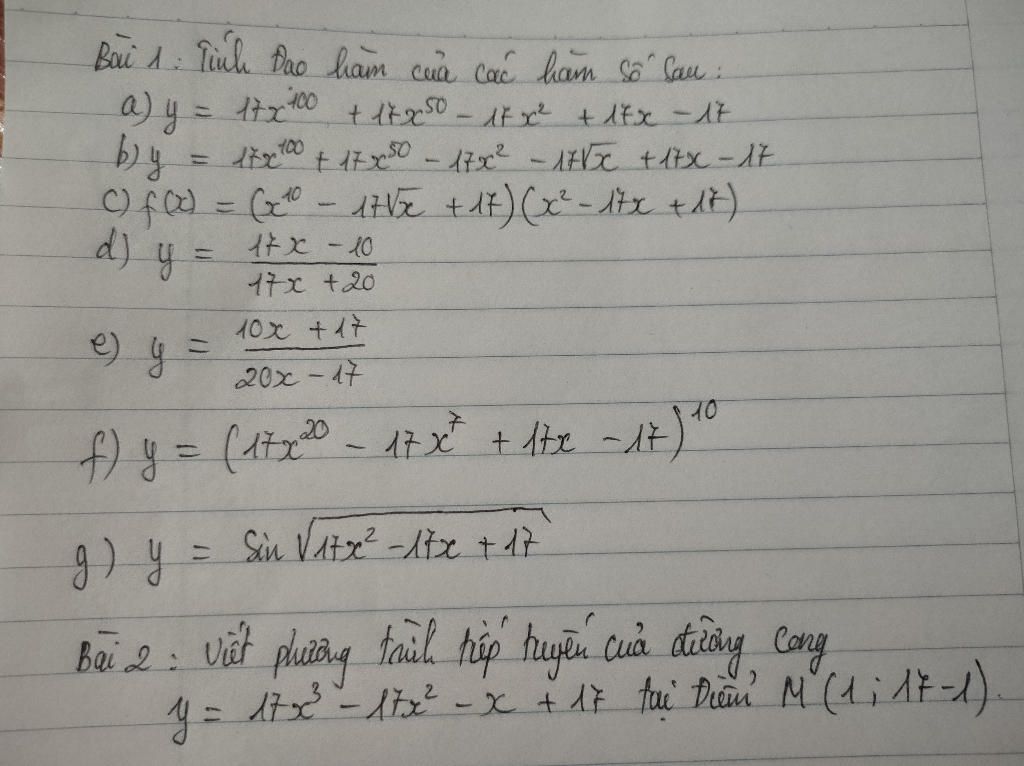 Bài 1: Tính Đạo hàm của các hàm số sau:
a) y = 17x¹⁰⁰ + 17x⁵⁰ - 17x² + 17x - 17
b) y = 17x¹⁰⁰ + 17x⁵⁰ - 17x² - 17√x + 17x - 17
c) f(x) = (x¹⁰ - 17√x + 17)(x² - 17x + 17)
d) y = (17x - 10)/(17x + 20)
e) y = (10x + 17)/(20x - 17)
f) y = (17x²⁰ - 17x⁷ + 17x - 17)¹⁰
g) y = Sin √(17x² - 17x + 17)
Bài 2: Viết phương trình tiếp tuyến của đường cong
y = 17x³ - 17x² - x + 17 tại Điểm M (1; 17-1).